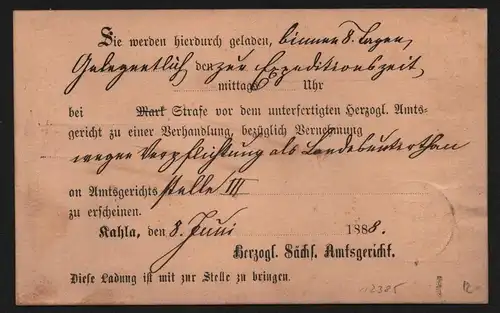 Sie werden hierdurch geladen, binnen 8 Tagen,
Gelegentlich den zur Expeditionszeit
mittags Uhr
bei Mark Strafe vor dem unterfertigten Herzogl. Amts-
gericht zu einer Verhandlung, bezüglich Vernehmung
wegen Verpflichtung als Landesunterthan
an Amtsgerichtsstelle III
zu erscheinen.
Kahla, den 8. Juni 1888.
Herzogl. Sächs. Amtsgericht.
Diese Ladung ist mit zur Stelle zu bringen.
12385